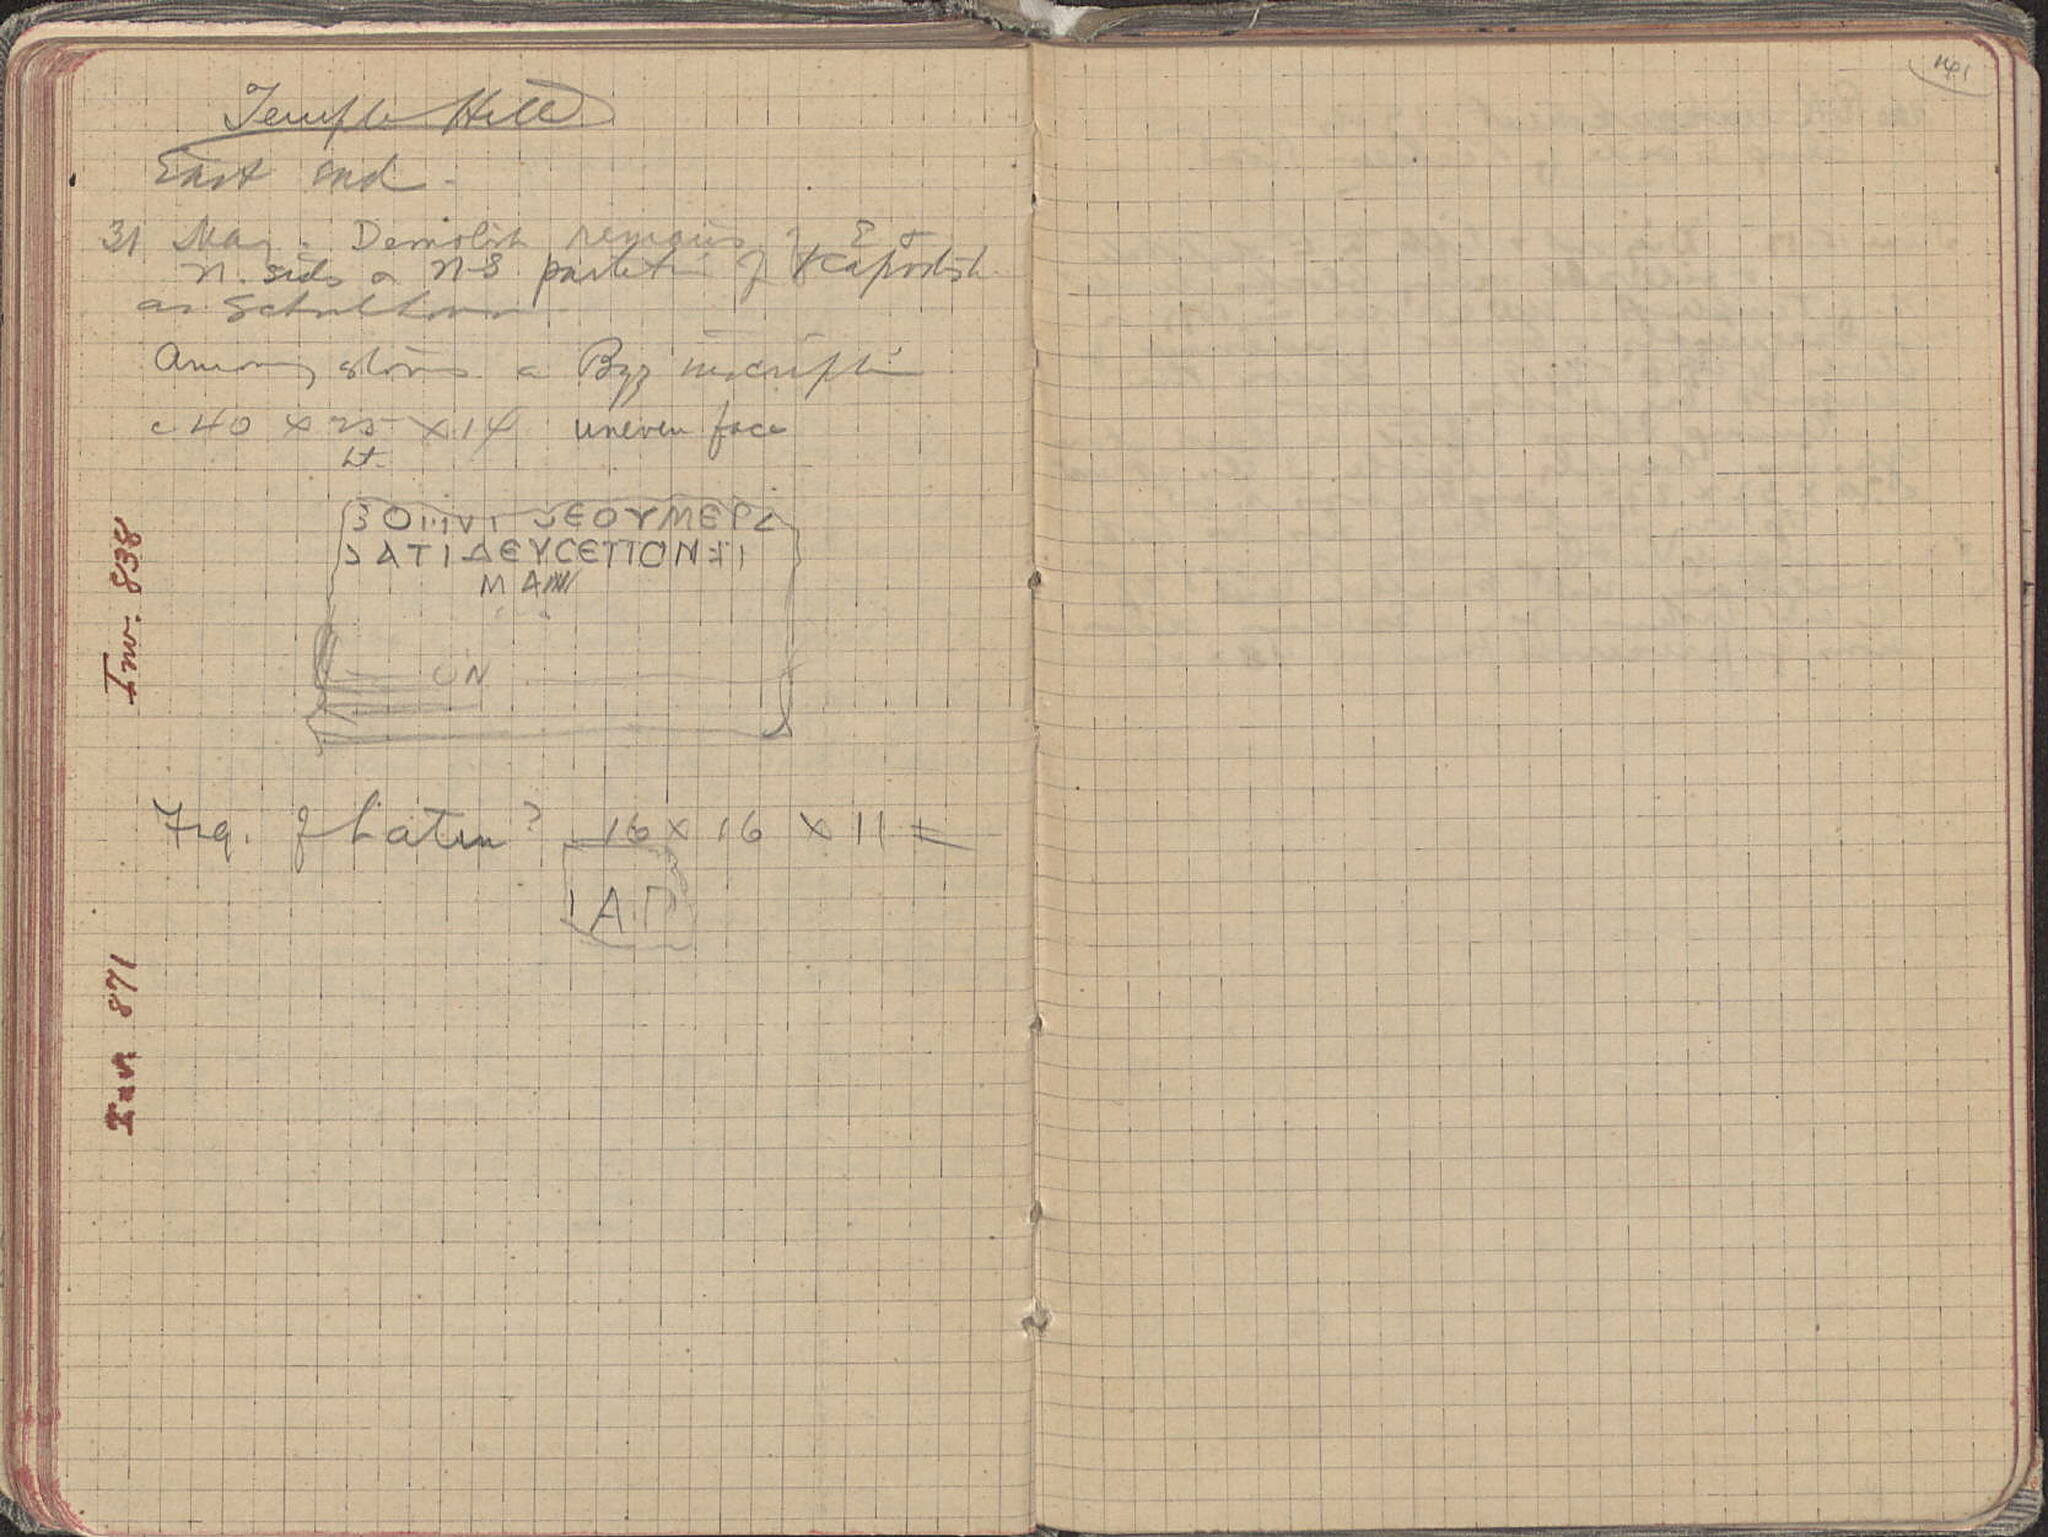 Temple Hill
East end -
31 May. Demolish remains of E &
N. side & N-S partition of Kapodist.
as Schoolhouse
Among stones a Byz inscription
c 40 × 25 × 14 uneven face
ht.
ΕΟΥΜΕΡ
ΑΤΙΔΕΥCΕΠΟΝ
ΜΑ
ON
Inv. 838
Frg. of Latin? 16 × 16 × 11 =
IAP
Inv 871